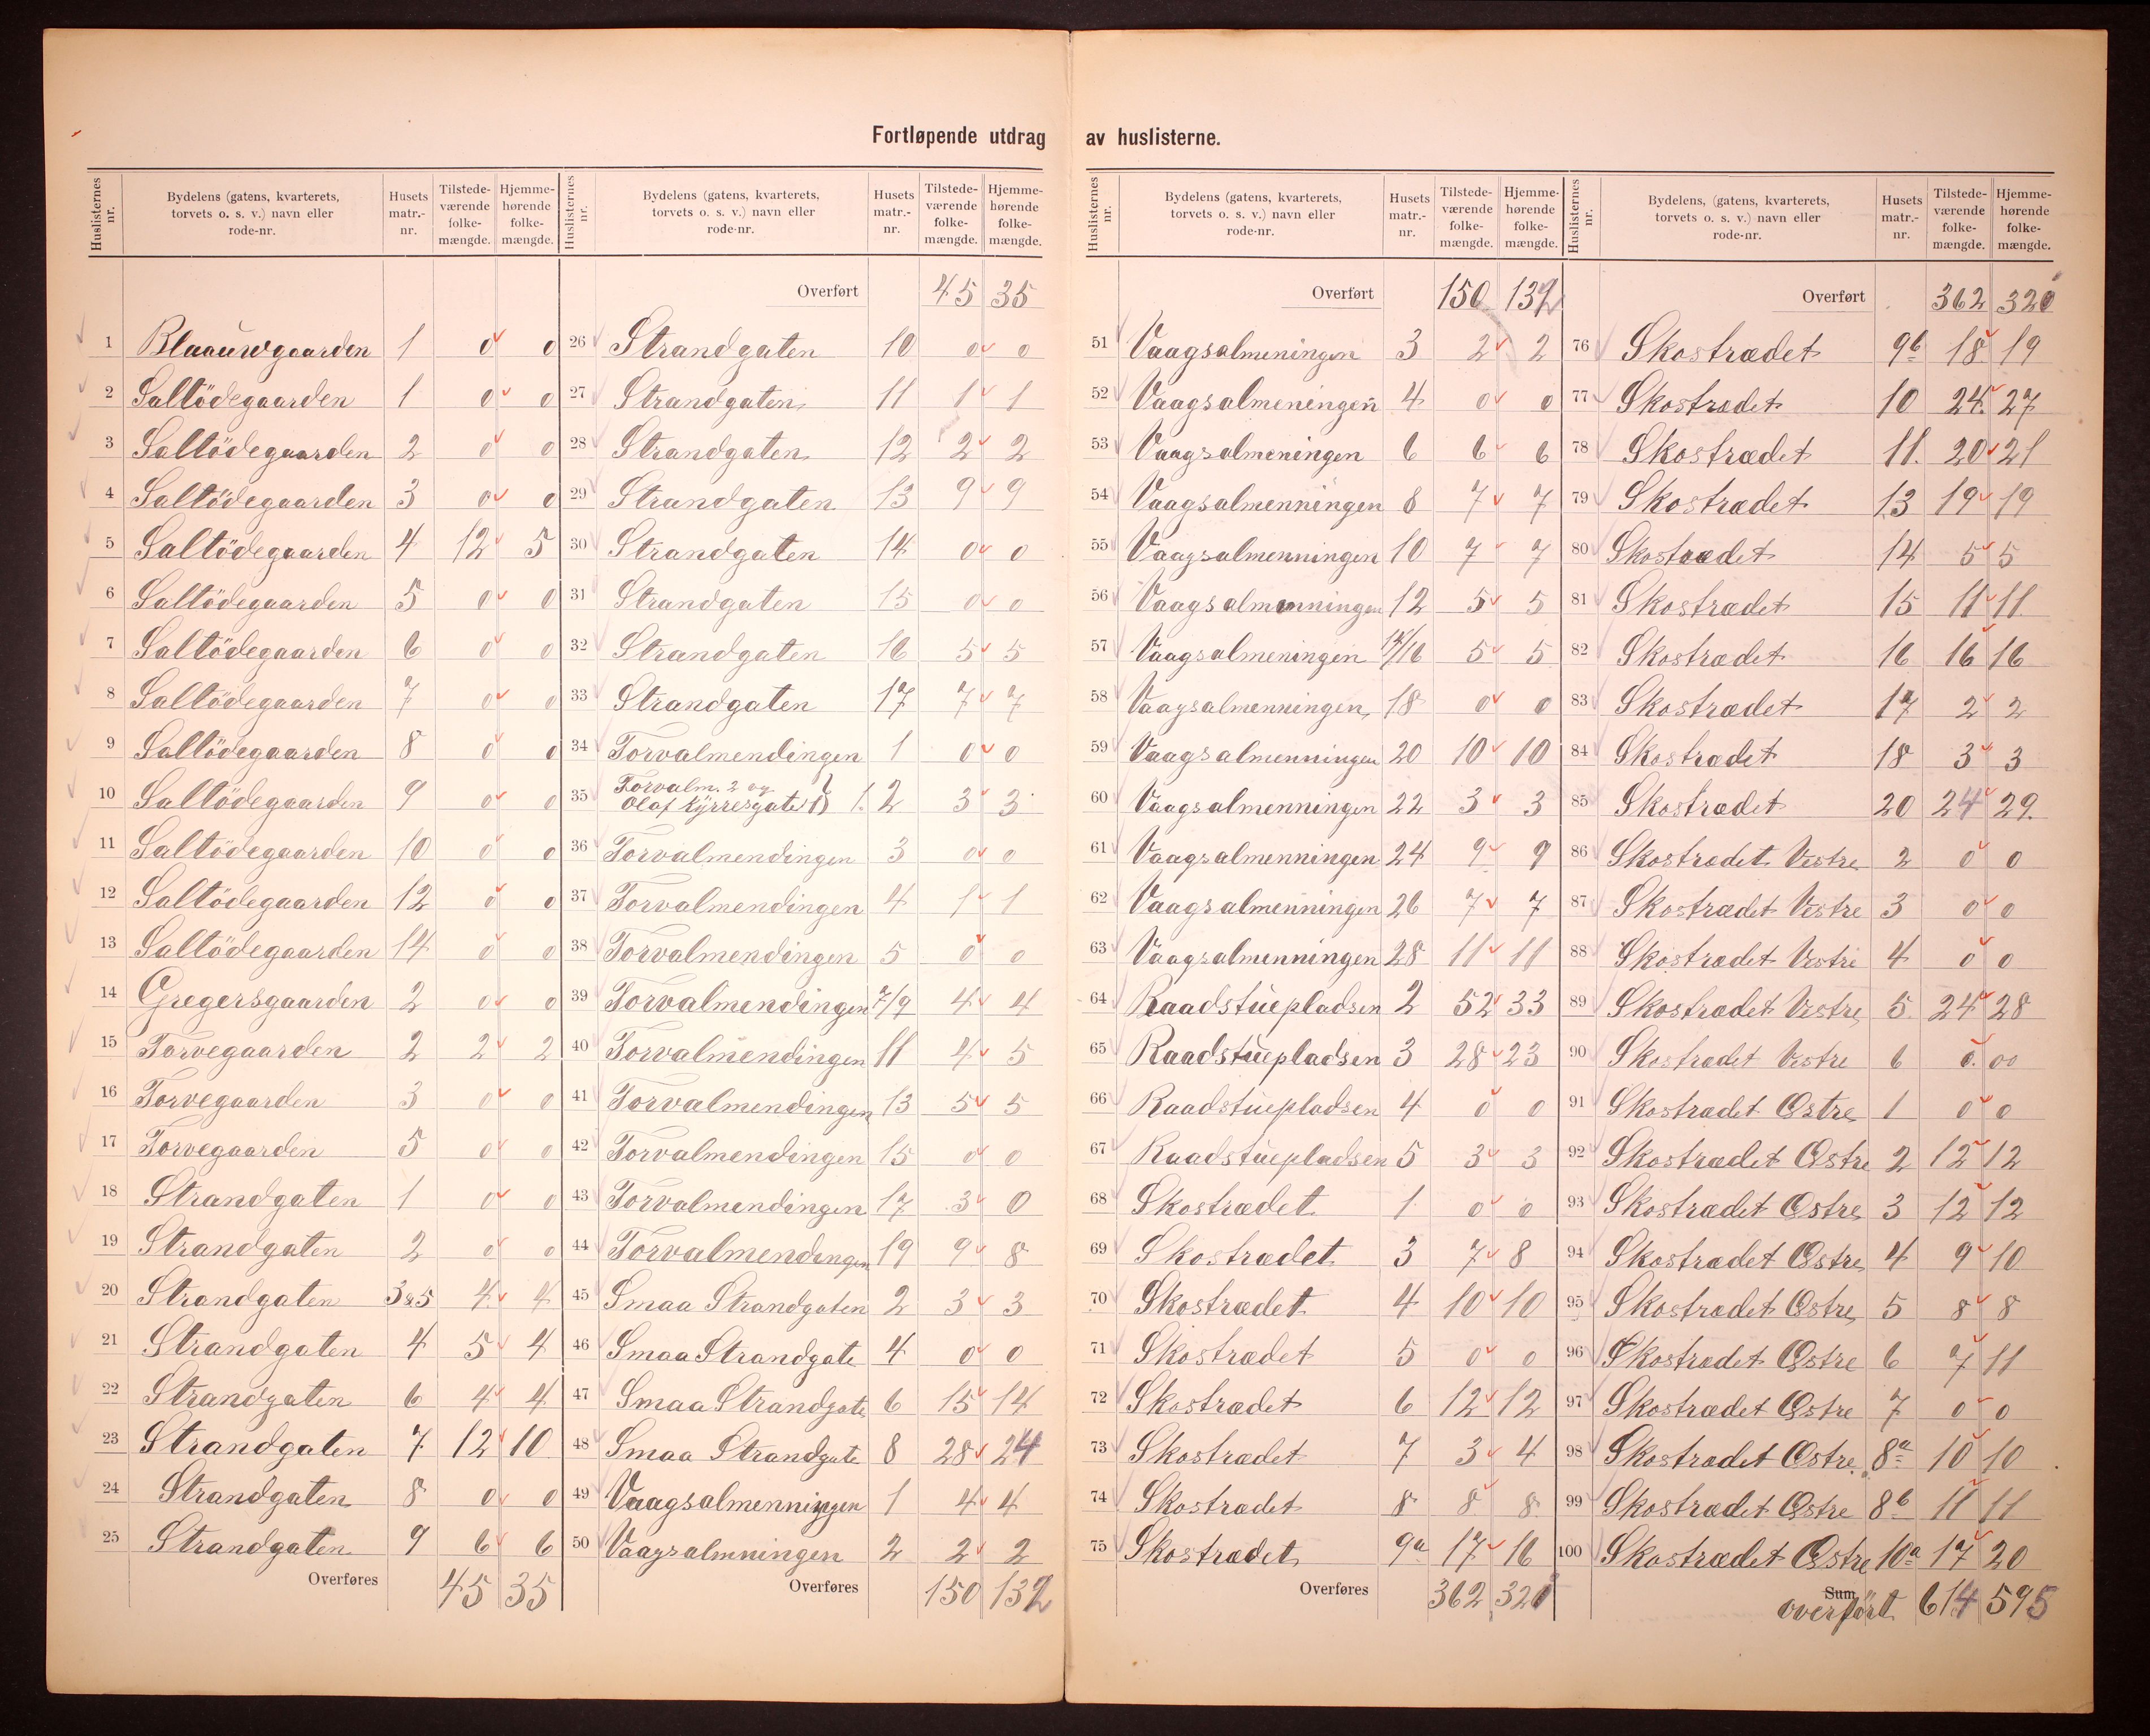 Fortløpende utdrag av huslisterne.
Huslisternes nr. | Bydelens (gatens, kvarterets, torvets o. s. v.) navn eller rode-nr. | Husets matr.-nr. | Tilstede-værende folke-mængde. | Hjemme-hørende folke-mængde.
1 Blaauwgaarden 1 0 0
2 Saltödegaarden 1 0 0
3 Saltödegaarden 2 0 0
4 Saltödegaarden 3 0 0
5 Saltödegaarden 4 12 5
6 Saltödegaarden 5 0 0
7 Saltödegaarden 6 0 0
8 Saltödegaarden 7 0 0
9 Saltödegaarden 8 0 0
10 Saltödegaarden 9 0 0
11 Saltödegaarden 10 0 0
12 Saltödegaarden 12 0 0
13 Saltödegaarden 14 0 0
14 Gregersgaarden 2 0 0
15 Torvegaarden 2 2 2
16 Torvegaarden 3 0 0
17 Torvegaarden 5 0 0
18 Strandgaten 1 0 0
19 Strandgaten 2 0 0
20 Strandgaten 3&5 4 4
21 Strandgaten 4 5 4
22 Strandgaten 6 4 4
23 Strandgaten 7 12 10
24 Strandgaten 8 0 0
25 Strandgaten 9 6 6
Overføres 45 35
Huslisternes nr. | Bydelens (gatens, kvarterets, torvets o. s. v.) navn eller rode-nr. | Husets matr.-nr. | Tilstede-værende folke-mængde. | Hjemme-hørende folke-mængde.
Overført 45 35
26 Strandgaten 10 0 0
27 Strandgaten 11 1 1
28 Strandgaten 12 2 2
29 Strandgaten 13 9 9
30 Strandgaten 14 0 0
31 Strandgaten 15 0 0
32 Strandgaten 16 5 5
33 Strandgaten 17 7 7
34 Torvalmendingen 1 0 0
35 Torvalm. 2 og
Olaf Kÿrresgate 1) 1. 2 3 3
36 Torvalmendingen 3 0 0
37 Torvalmendingen 4 1 1
38 Torvalmendingen 5 0 0
39 Torvalmendingen 7/9 4 4
40 Torvalmendingen 11 4 5
41 Torvalmendingen 13 5 5
42 Torvalmendingen 15 0 0
43 Torvalmendingen 17 3 0
44 Torvalmendingen 19 9 8
45 Smaa Strandgaten 2 3 3
46 Smaa Strandgate 4 0 0
47 Smaa Strandgate 6 15 14
48 Smaa Strandgate 8 28 24
49 Vaagsalmenningen 1 4 4
50 Vaagsalmningen 2 2 2
Overføres 150 132
Huslisternes nr. | Bydelens (gatens, kvarterets, torvets o. s. v.) navn eller rode-nr. | Husets matr.-nr. | Tilstede-værende folke-mængde. | Hjemme-hørende folke-mængde.
Overført 150 132
51 Vaagsalmeningen 3 2 2
52 Vaagsalmeningen 4 0 0
53 Vaagsalmeningen 6 6 6
54 Vaagsalmenningen 8 7 7
55 Vaagsalmenningen 10 7 7
56 Vaagsalmenningen 12 5 5
57 Vaagsalmeningen 14/16 5 5
58 Vaagsalmenningen 18 0 0
59 Vaagsalmenningen 20 10 10
60 Vaagsalmenningen 22 3 3
61 Vaagsalmenningen 24 9 9
62 Vaagsalmenningen 26 7 7
63 Vaagsalmenningen 28 11 11
64 Raadstuepladsen 2 52 33
65 Raadstuepladsen 3 28 23
66 Raadstuepladsen 4 0 0
67 Raadstuepladsen 5 3 3
68 Skostrædet 1 0 0
69 Skostrædet 3 7 8
70 Skostrædet 4 10 10
71 Skostrædet 5 0 0
72 Skostrædet 6 12 12
73 Skostrædet 7 3 4
74 Skostrædet 8 8 8
75 Skostrædet 9a 17 16
Overføres 362 321
Huslisternes nr. | Bydelens, (gatens, kvarterets, torvets o. s. v.) navn eller rode-nr. | Husets matr.-nr. | Tilstede-værende folke-mængde. | Hjemme-hørende folke-mængde.
Overført 362
76 Skostrædet 9b 18 19
77 Skostrædet 10 24 27
78 Skostrædet 11. 20 21
79 Skostrædet 13 19 19
80 Skostrædet 14 5 5
81 Skostrædet 15 11 11
82 Skostrædet 16 16 16
83 Skostrædet 17 2 2
84 Skostrædet 18 3 3
85 Skostrædet 20 24 29.
86 Skostrædet Vestre 2 0 0
87 Skostrædet Vestre 3 0 0
88 Skostrædet Vestre 4 0 0
89 Skostrædet Vestre 5 24 28
90 Skostrædet Vestre 6 0 00
91 Skostrædet Østre 1 0 0
92 Skostrædet Østre 2 12 12
93 Skostrædet Østre 3 12 12
94 Skostrædet Østre 4 9 10
95 Skostrædet Østre 5 8 8
96 Skostrædet Østre 6 7 11
97 Skostrædet Østre 7 0 0
98 Skostrædet Østre 8a 10 10
99 Skostrædet Østre 8b 11 11
100 Skostrædet Østre 10a 17 20
Sum
overført 614 595